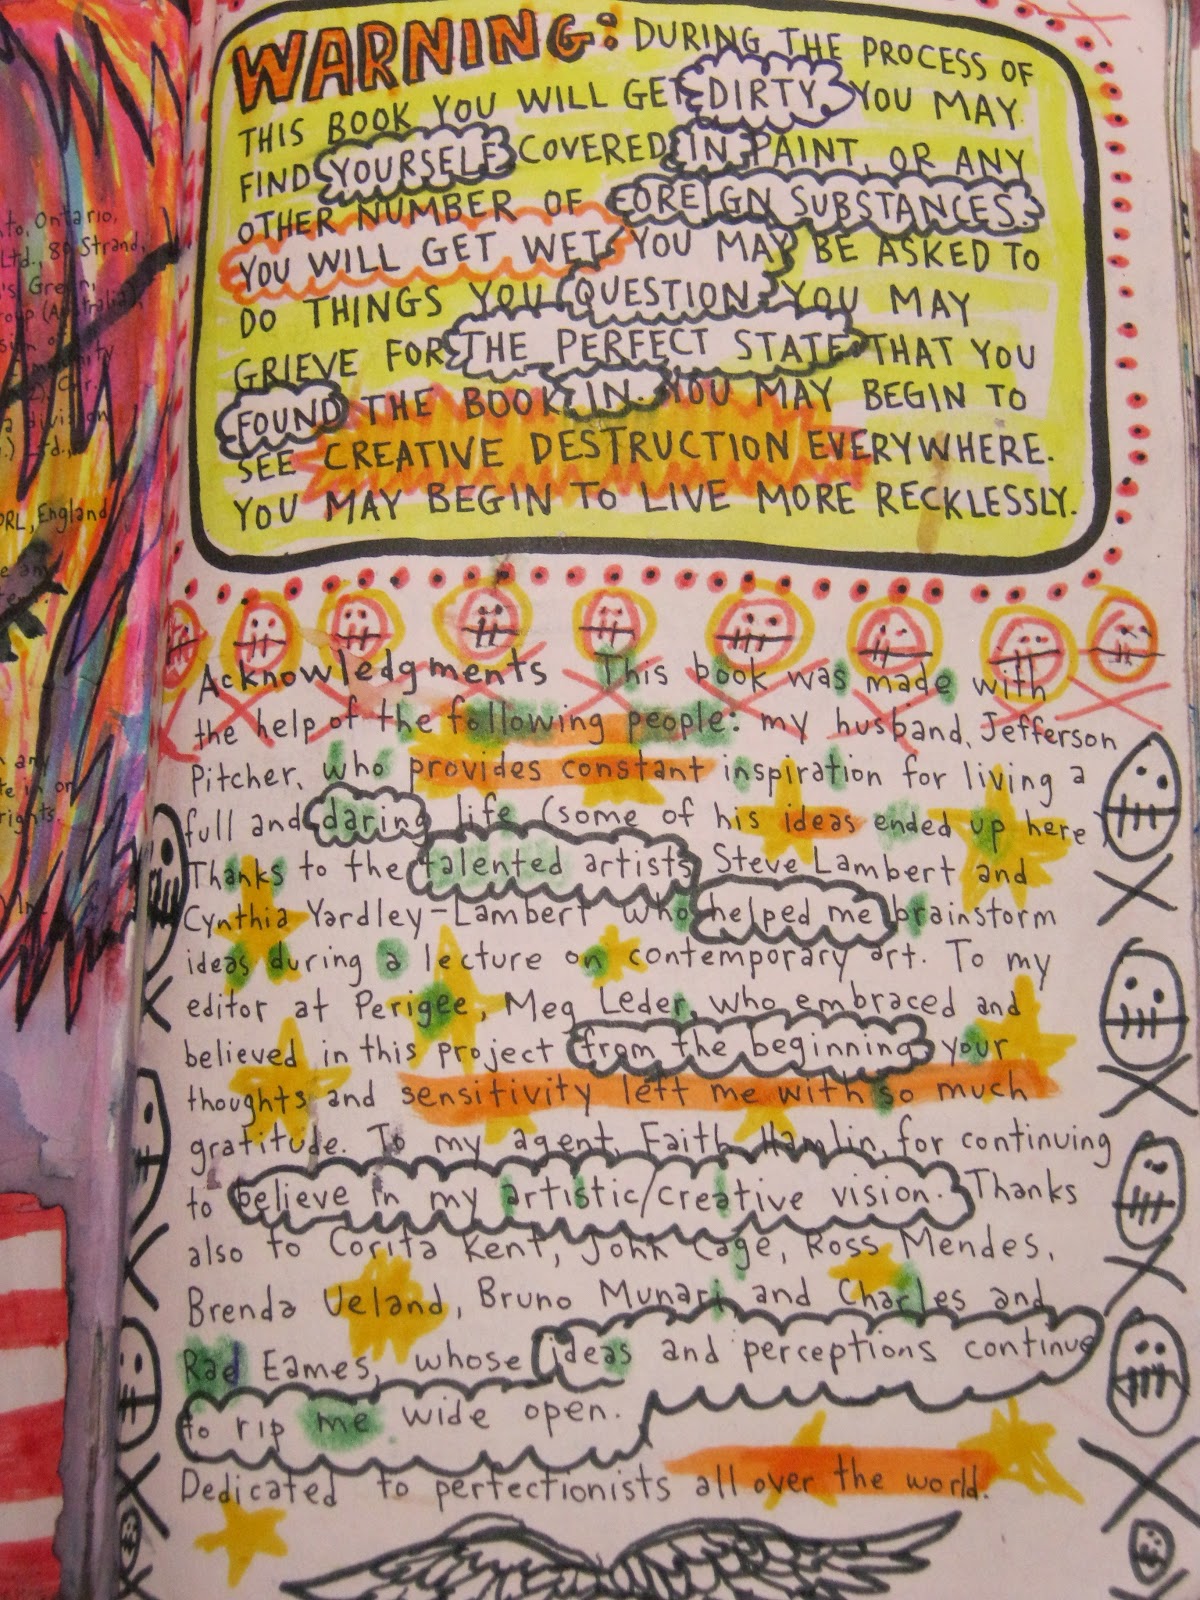 to, Ontario,
Ltd., 80 Strand,
WARNING: DURING THE PROCESS OF
THIS BOOK YOU WILL GET DIRTY. YOU MAY
FIND YOURSELF COVERED IN PAINT, OR ANY
OTHER NUMBER OF FOREIGN SUBSTANCES.
YOU WILL GET WET. YOU MAY BE ASKED TO
DO THINGS YOU QUESTION. YOU MAY
GRIEVE FOR THE PERFECT STATE THAT YOU
FOUND THE BOOK IN. YOU MAY BEGIN TO
SEE CREATIVE DESTRUCTION EVERYWHERE.
YOU MAY BEGIN TO LIVE MORE RECKLESSLY.
Acknowledgments This book was made with
the help of the following people: my husband, Jefferson
Pitcher, who provides constant inspiration for living a
full and daring life (some of his ideas ended up here
Thanks to the talented artists Steve Lambert and
Cynthia Yardley-Lambert who helped me brainstorm
ideas during a lecture on contemporary art. To my
editor at Perigee, Meg Leder, who embraced and
believed in this project from the beginning your
thoughts and sensitivity left me with so much
gratitude. To my agent, Faith Hamlin, for continuing
to believe in my artistic/creative vision. Thanks
also to Corita Kent, John Cage, Ross Mendes,
Brenda Ueland, Bruno Munari and Charles and
Rae Eames, whose ideas and perceptions continue
to rip me wide open.
Dedicated to perfectionists all over the world.